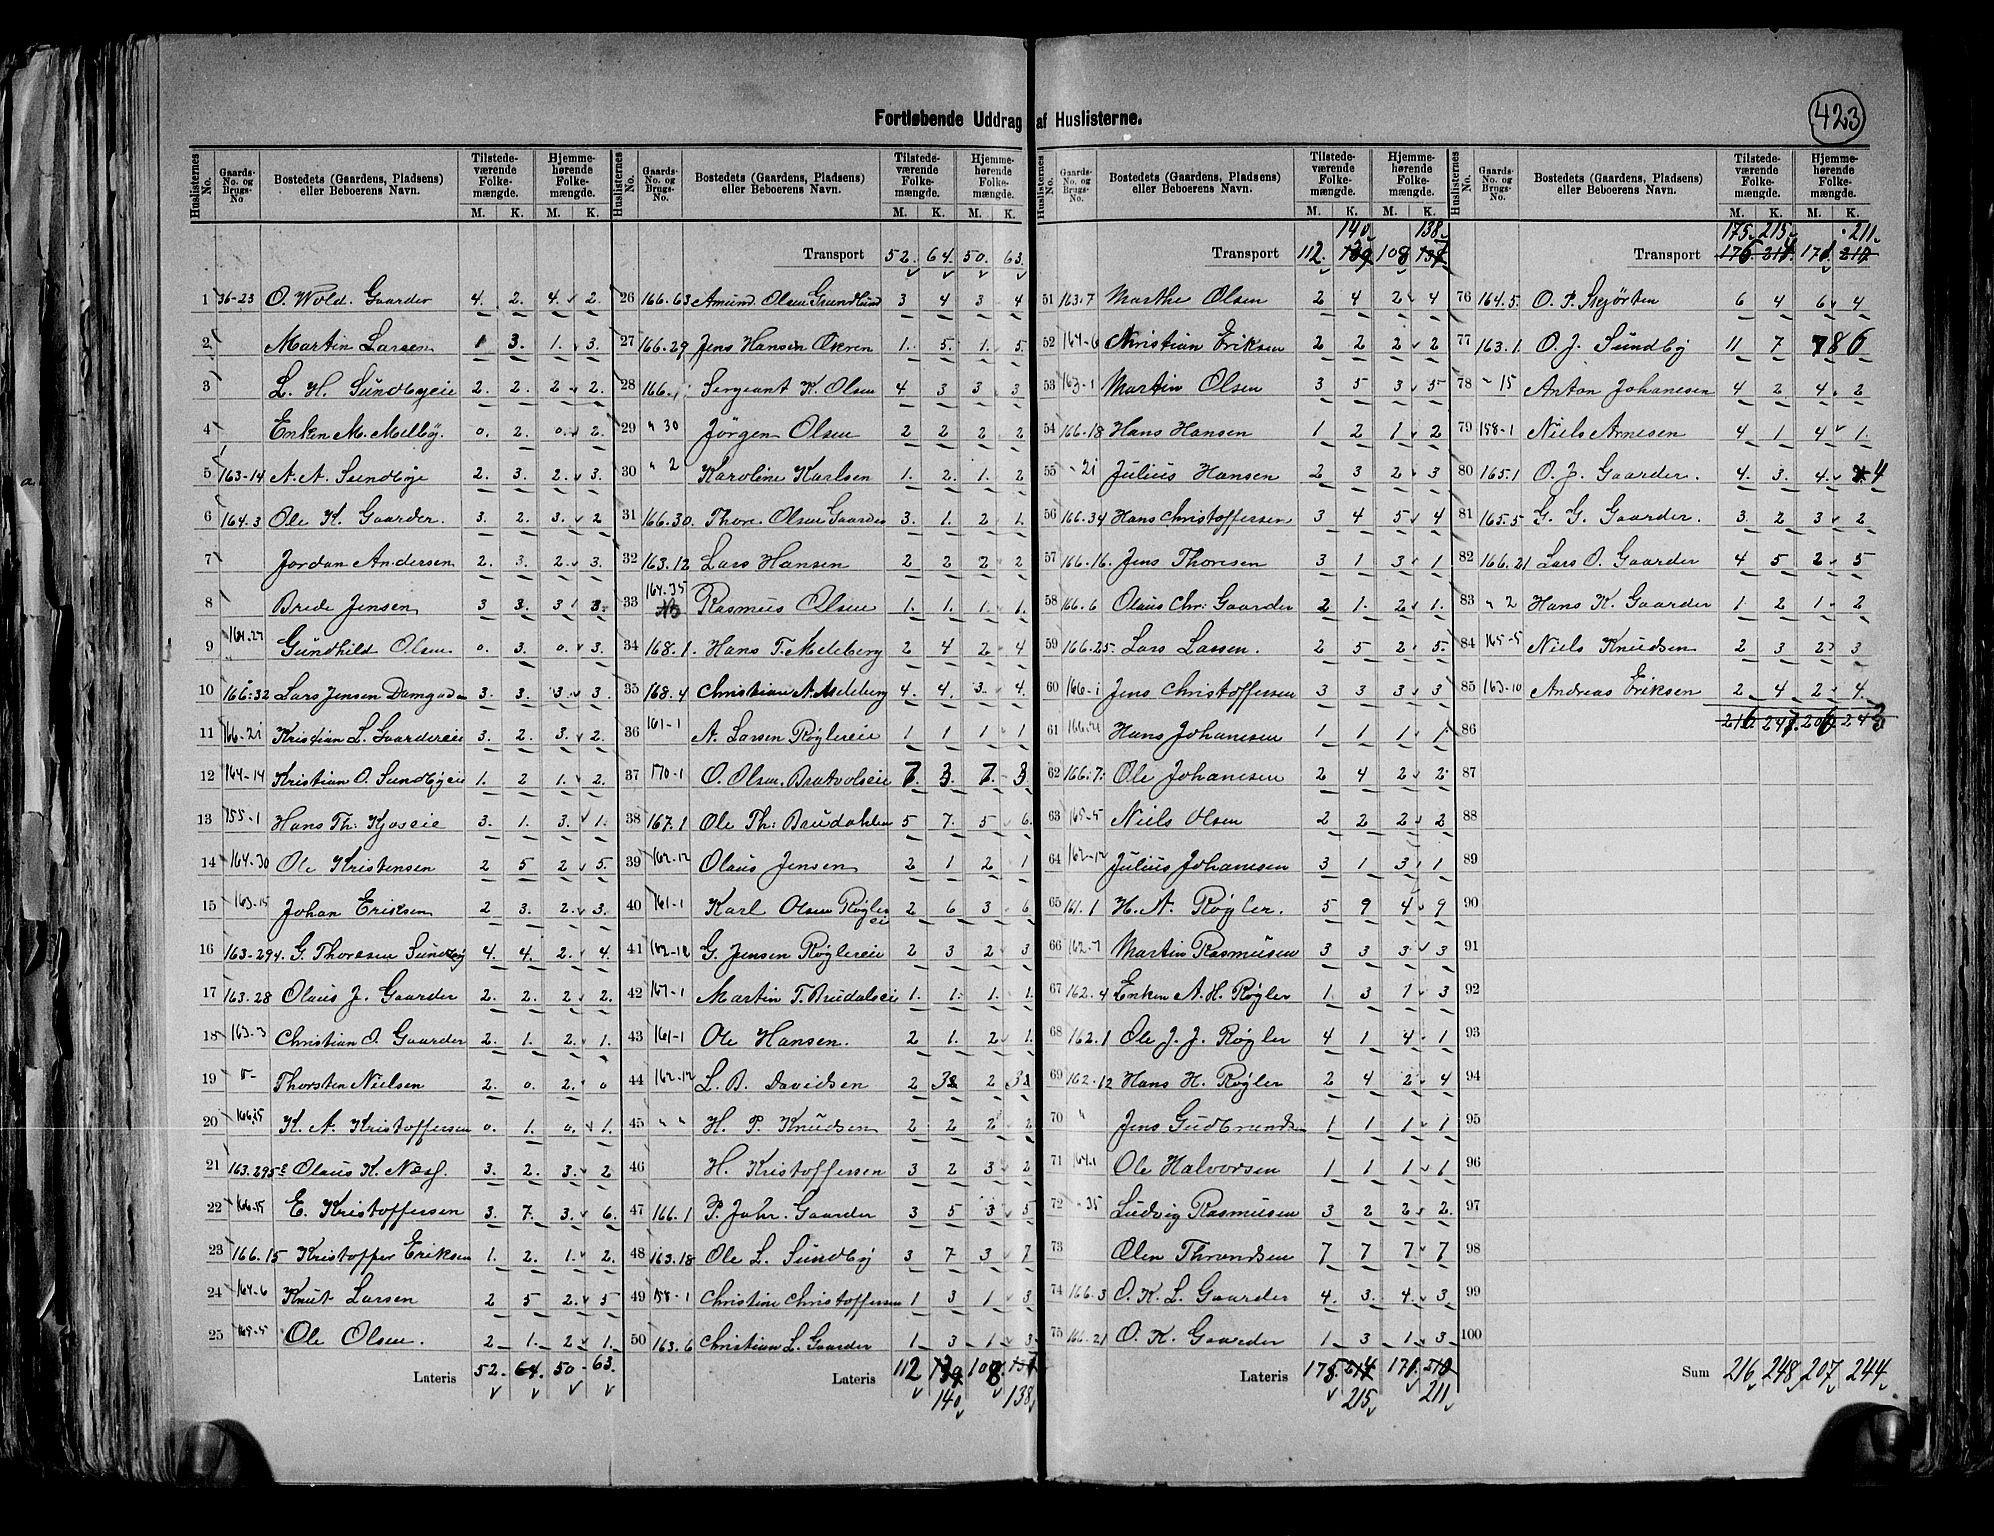 423
Fortløbende Uddrag af Huslisterne.
Huslisternes No. Gaards-No. og Brugs-No Bostedets (Gaardens, Pladsens) eller Beboerens Navn. Tilstedeværende Folkemængde. M. K. Hjemmehørende Folkemængde. M. K.
1 36-23 O. Wold. Gaarder 4. 2. 4. 2.
2 Martin Larsen 1 3. 1. 3.
3 L. H. Sundbyeie 2. 2. 2 2.
4 Enken M. Melby. 0. 2. 0. 2.
5 163-14 A. A. Sundbye 2. 3. 2. 3.
6 164.3 Ole K. Gaarder. 3. 2. 3. 2
7 Jordan Andersen 2. 3. 2. 3.
8 Brede Jensen 3 3. 3 3.
9 164.27 Gundhild Olsen 0. 3. 0. 3.
10 166.32 Lars Jensen 3. 3. 3. 3.
11 166-21 Kristian L. Gaardereie 3. 2. 3. 2.
12 164-14 Kristian O. Sundbyeie 1. 2 1. 2.
13 155-1 Hans Th. 3. 1. 3. 1.
14 164.30 Ole Kristensen 2 5 2 5.
15 163-15 Johan Eriksen 2 3. 2. 3.
16 163-294. G. Thoresen Sundby 4. 4. 2. 4.
17 163.28 Olaus J. Gaarder 2. 2. 2 2.
18 163-3 Christian O. Gaarder 2. 1. 2. 1.
19 Thorsten Nielsen 2. 0. 2. 0
20 K. A. Kristoffersen 0. 1. 0. 1.
21 163.295 Olaus K. 3. 2. 3. 2
22 166-15 E. Kristoffersen 3. 7. 3. 6.
23 166.15 Kristoffer Eriksen 1. 2. 1. 2.
24 164-6 Knut Larsen 2 5 2. 5
25 165-5 Ole Olsen. 2 1. 2 1.
Lateris 52. 64. 50 63.
Huslisternes No. Gaards-No. og Brugs-No. Bostedets (Gaardens, Pladsens) eller Beboerens Navn. Tilstedeværende Folkemængde. M. K. Hjemmehørende Folkemængde. M. K.
Transport 52. 64. 50. 63.
26 166.63 Amund Olsen Grundlund 3 4 3 4
27 166.29 Jens Hansen Økren 1. 5. 1. 5.
28 166. Sergeant K. Olsen 4 3 3 3
29 " 30 Jörgen Olsen 2 2 2 2
30 " 2 Karoline Karlsen 1. 2. 1. 2
31 166.30. Thore Olsen Gaarder 3. 1. 2 1.
32 163.12 Lars Hansen 2 2 2 2
33 164.35 Rasmus Olsen 1. 1. 1. 1.
34 168.1. Hans T. Meleberg 2 4 2 4
35 168.4 Christian A. 4. 4. 3. 4.
36 161-1 A. Larsen Røglereie 1 1 1 1
37 170-1 O. Olsen Bratvolseie 7. 3. 7. 3.
38 167.1 Ole Th. Brudahlen 5 7. 5 6.
39 162-12 Olaus Jensen 2 1 2 1
40 161-1 Karl Olsen Røglereie 2 6 3 6
41 162-12 G. Jensen Røglereie 2 3 2 3
42 167-1 Martin T. Brudalsei 1. 1. 1. 1.
43 161-1 Ole Hansen. 2 1. 2 1.
44 162-12 L. B. Davidsen 2 3 2 3
45 " " H. P. Knudsen 2 2 2 2
46 H. Kristoffersen 3 2 3 2
47 166.1 P. Juhr. Gaarder 3 5 3 5
48 163.18 Ole L. Sundby 3 7 3 7
49 158-1 Christine Christoffersen 1 3 1 3
50 163.6 Christian L. Gaarder 1 3 1 3
Lateris 112 139 108 137
140 138
Huslisternes No. Gaards-No. og Brugs-No. Bostedets (Gaardens, Pladsens) eller Beboerens Navn. Tilstedeværende Folkemængde. M. K. Hjemmehørende Folkemængde. M. K.
140 138
Transport 112. 139 108 137
51 163.7 Marthe Olsen 2 4 2 4
52 164-6 Christian Eriksen 2 2 2 2
53 163-1 Martin Olsen 3 5 3 5
54 166.18 Hans Hansen 1 2 1 2
55 " 21 Julius Hansen 2 3 2 3
56 166.34 Hans Christoffersen 3 4 5 4
57 166.16. Jens Thoresen 3 1 3 1
58 166.6 Olaus Chr. Gaarder 2 1. 2 1.
59 166.25. Lars Larsen. 2 5 2 5.
60 166-1 Jens Christoffersen 3 3 3 3
61 166.21 Hans Johanesen 1 1 1 1
62 166.7. Ole Johanesen 2 4 2 2
63 165-5 Niels Olsen 2 2 2 2
64 162-12 Julius Johanesen 3 1 3 1
65 161.1 H. A. Røgler. 5 9 4 9
66 162.7 Martin Rasmusen 3 3 3 3
67 162.4 Enken A. H. Røgler 1. 3 1 3
68 162.1 Ole J. J. Røgler 4 1 4 1
69 162.12 Hans H. Røgler 2 4 2 4
70 " Jens Gudbrandsen 1 1 1 1
71 164.1 Ole Halvorsen 1 1 1 1
72 " 35 Ludvig Rasmusen 3 2 2 2.
73 Olen Throndsen 7 7 7 7
74 166.3 O. K. L. Gaarder 4. 3. 4. 3
75 166.21 O. K. Gaarder 1 3 1 3
Lateris 175. 214 171. 210
215 211
Huslisternes No. Gaards-No. og Brugs-No. Bostedets (Gaardens, Pladsens) eller Beboerens Navn. Tilstedeværende Folkemængde. M. K. Hjemmehørende Folkemængde. M. K.
175. 215. 211.
Transport 176 214 171 210
76 164.5. O. P. Skjørten 6 4 6 4
77 163.1. O. J. Sundby 11 7 8 6
78 " 15 Anton Johanesen 4 2 4 2
79 158-1 Niels Arnesen 4 1 4 1.
80 165.1 O. J. Gaarder. 4. 3. 4. 4
81 165.5 G. G. Gaarder. 3. 2 3 2
82 166.21 Lars O. Gaarder 4 5 2 5
83 " 2 Hans K. Gaarder 1. 2 1 2
84 165-5 Niels Knudsen 2 3 2 3
85 163-10 Andreas Eriksen 2 4 2 4.
86 216 247. 206 243
87
88
89
90
91
92
93
94
95
96
97
98
99
100
Sum 216 248 207 244